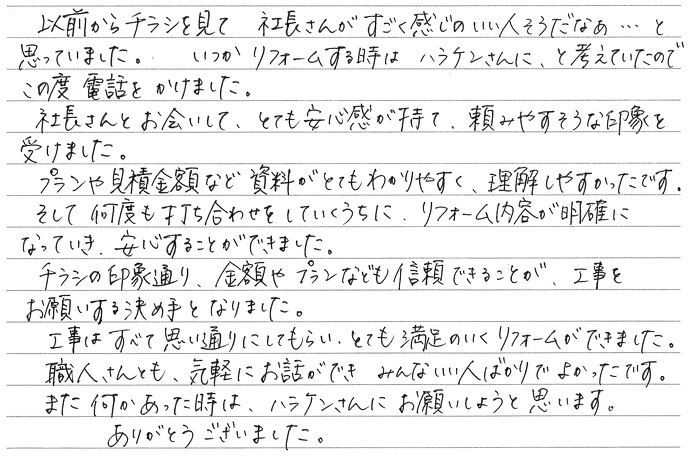 以前からチラシを見て 社長さんがすごく感じのいい人そうだなぁ…と
思っていました。 いつかリフォームする時はハラケンさんに、と考えていたので
この度電話をかけました。
社長さんとお会いして、とても安心感が持て、頼みやすそうな印象を
受けました。
プランや見積金額など資料がとてもわかりやすく、理解しやすかったです。
そして何度も打ち合わせをしていくうちに、リフォーム内容が明確に
なっていき、安心することができました。
チラシの印象通り、金額やプランなども信頼できることが、工事を
お願いする決め手となりました。
工事はすべて思い通りにしてもらい、とても満足のいくリフォームができました。
職人さんとも、気軽にお話ができ みんないい人ばかりでよかったです。
また何かあった時は、ハラケンさんにお願いしようと思います。
ありがとうございました。